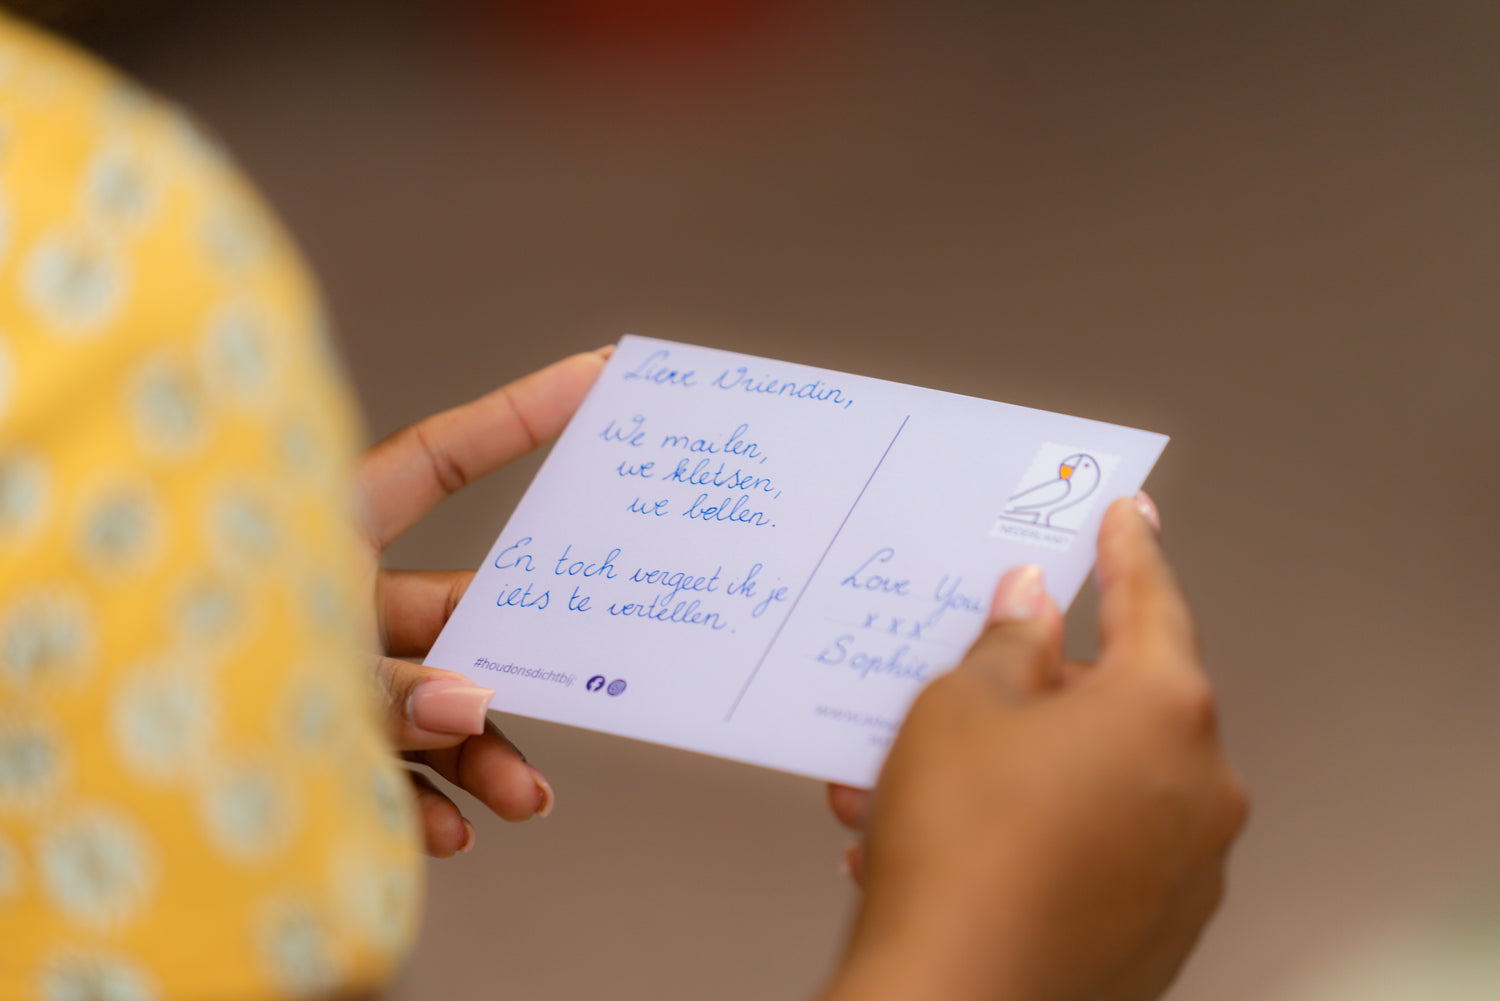 Lieve Vriendin,
We mailen,
we kletsen,
we bellen.
En toch vergeet ik je
iets te vertellen.
#houdonsdichtbij:
NEDERLAND
Love You
x x x
Sophie